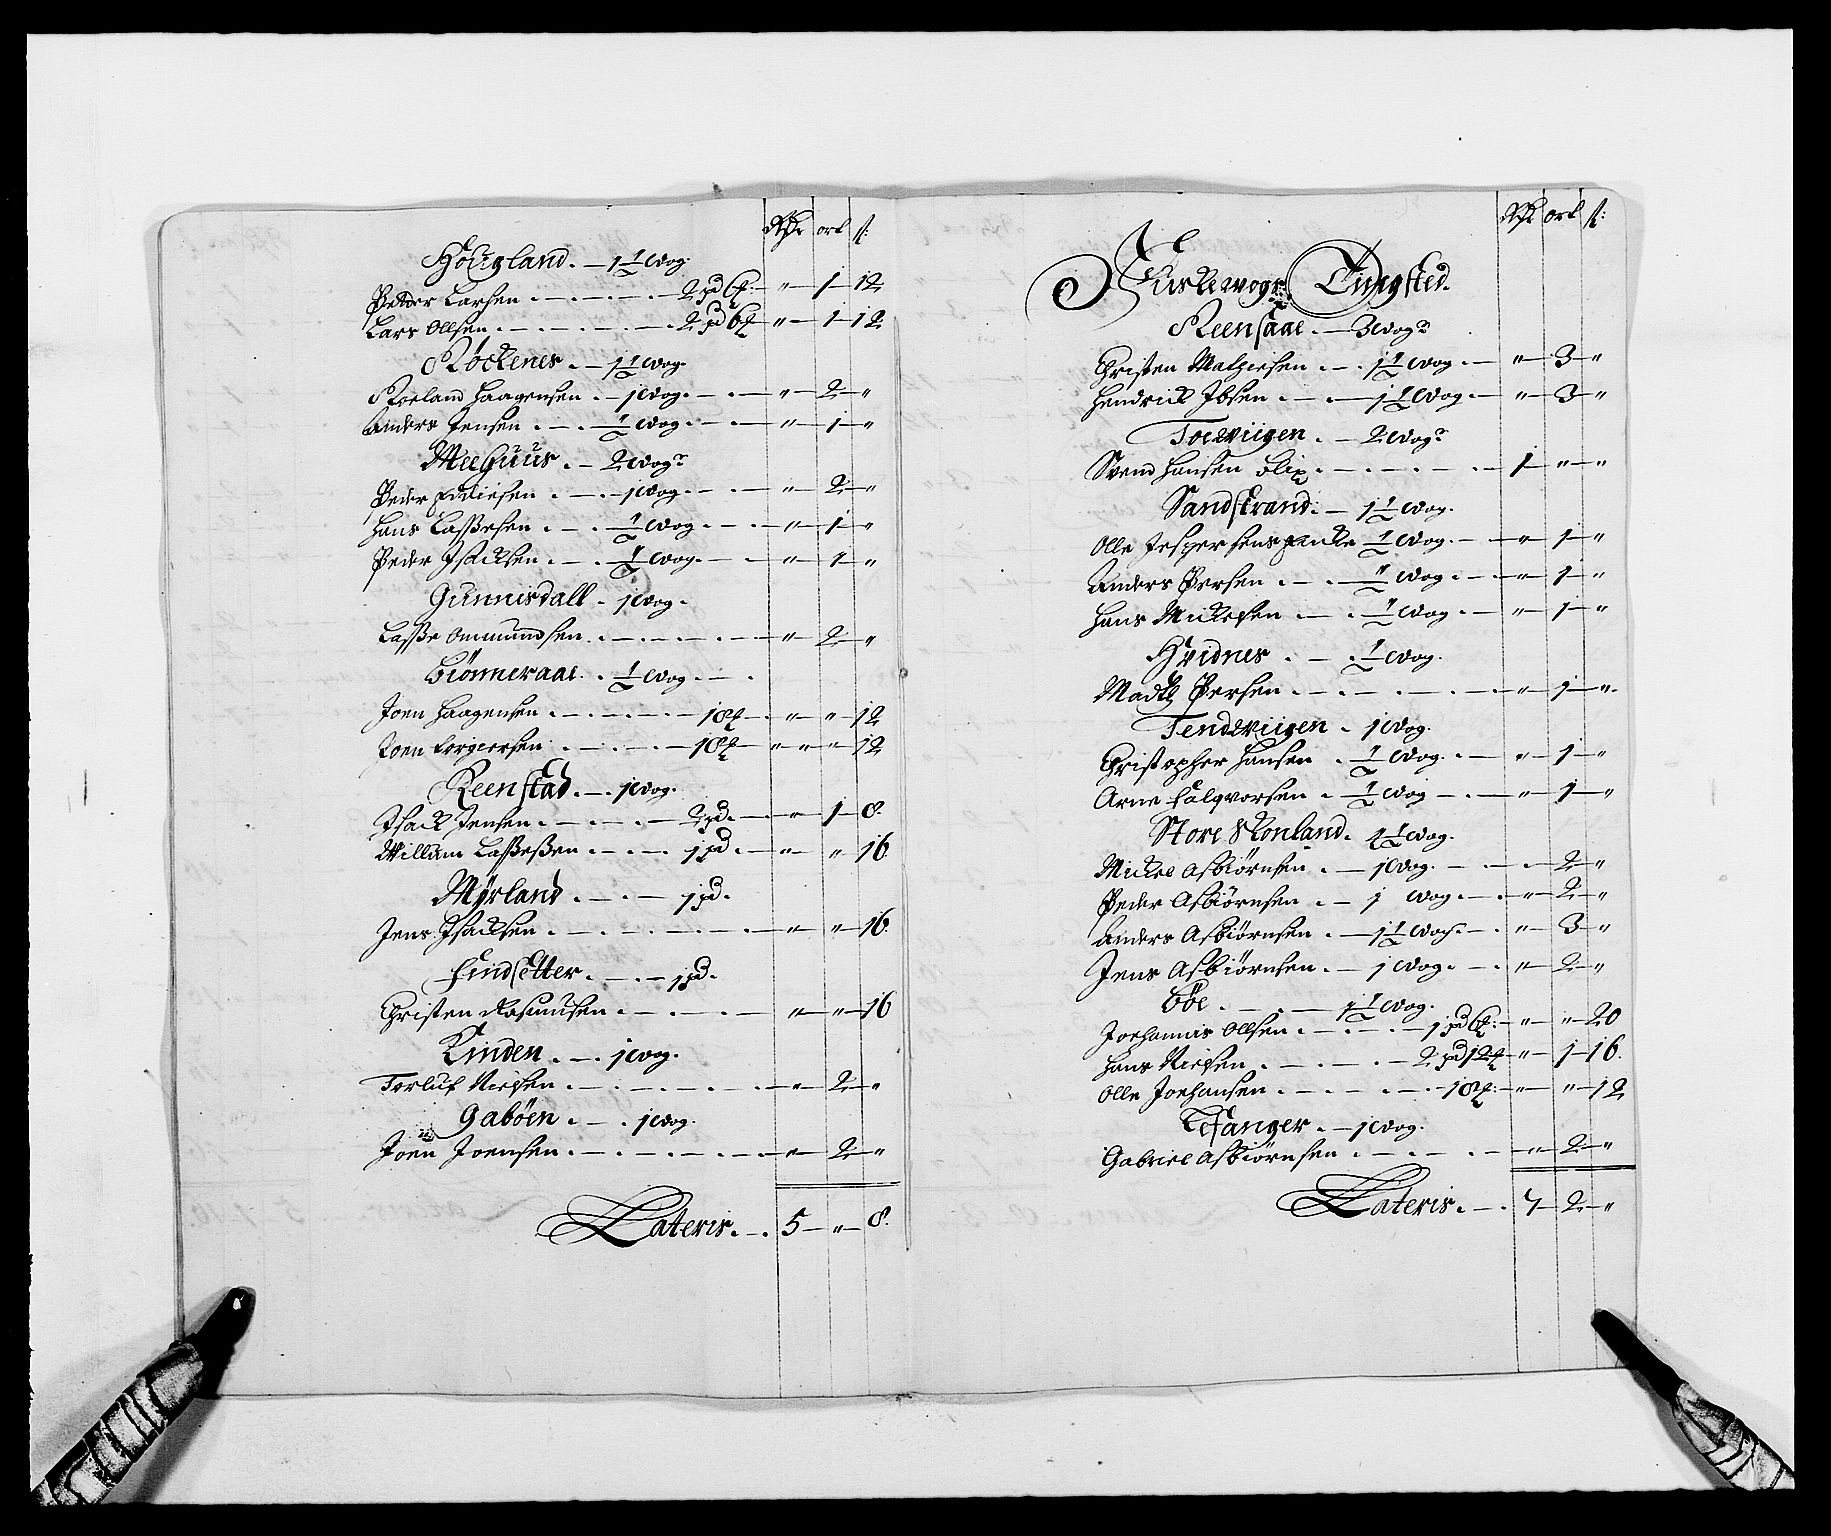 Rdr ort ß:
Hougland. — 1½ wog.
Peder Larsen . — . — . — 2 pd 6 f — " — 1 — 12
Lars Ollsen . — . — . — 2 pd 6 f — " — 1 — 12
Röckenes . — 1½ wog.
Roeland Haagensen . — 1 wog. — . — " — 2 — "
Anders Jensen . — . ½ wog. — . — " — 1 — "
Meehuus . — 2 wogr
Peder Eddiesen . — . 1 wog. — . — " — 2 — "
Hans Lassesen . — . ½ wog. — . — " — 1 — "
Peder Isacksen . — . ½ wog. — . — " — 1 — "
Gunnisdall . 1 wog.
Lasse Ommundsen . — . — . — " — 2 — "
Biönneraae . . ½ wog. — .
Joen Haagensen . — . — . — 18 f — . " — " — 12
Joen Torgiersen . — . — . — 18 f — " " " — 12
Reenstad . — . 1 wog.
Isack Jensen . — . — . — 2 pd. — . — " — 1 — 8.
Willam Lassesen . — . — 1 pd. — " — " 16.
Myrland . — . — 1 pd.
Jens Isacksen . — . — . — . — " — " — 16.
Findsetter . — . — 1 pd.
Christen Rasmusen . — . — . — " — " — 16
Linden . — . 1 wog.
Torluf Nielsen . — . — . — . — " — 2 — "
Gaböen . — . 1 wog.
Joen Joensen . — . — . — . — " — 2 — "
Lateris . — . 5 — " — 8.
Rdr ort ß:
Kirkewogs Tingsted.
Reensaae . — 3 wogr
Christen Mathiesen . — . 1½ wog. — " — 3 — "
Hendrick Ibsen . — . — 1½ wog. — " — 3 "
Toeviigen . — 2 wogr
Svend Hansen Blix . — . — . — . — 1 — " — "
Sandstrand. — 1½ wog.
Olle Jespersens encke ½ wog. — " — 1 — "
Anders Persen . — . ½ wog. — . — " — 1 — "
Hans Mickelsen . — . ½ wog. — " — 1 — "
Hvidnes . — . ½ wog.
Madtz Persen . — . — . — . — " — 1 — ".
Tendeviigen . 1 wog.
Christopher Hansen . ½ wog. — . — " — 1 — "
Arne Halqvorsen . ½ wog — . — " — 1 — "
Store Skonland. 4½ wog.
Mickel Asbiörnsen . — 1 wog. — . — . 2 — "
Peder Asbiörnsen . — 1 wog. — . — " — 2 — "
Anders Asbiörnsen . — 1½ wog. — . " — 3 — "
Jens Asbiörnsen . — 1 wog. — . " — 2 — "
Böe . — . — 1½ wog.
Joehannis Ollsen . — . — . — 1 pd 6 f: — " — " — 20
Hans Nielsen . — . — . — 2 pd 12 f — " — 1 — 16.
Olle Joehansen . — . — . — . 18 f: — " — " — 12
Tefanger . — 1 wog.
Gabriel Asbiörnsen . — . — . — " — 2 — "
Lateris . — . 7 — 2 — "